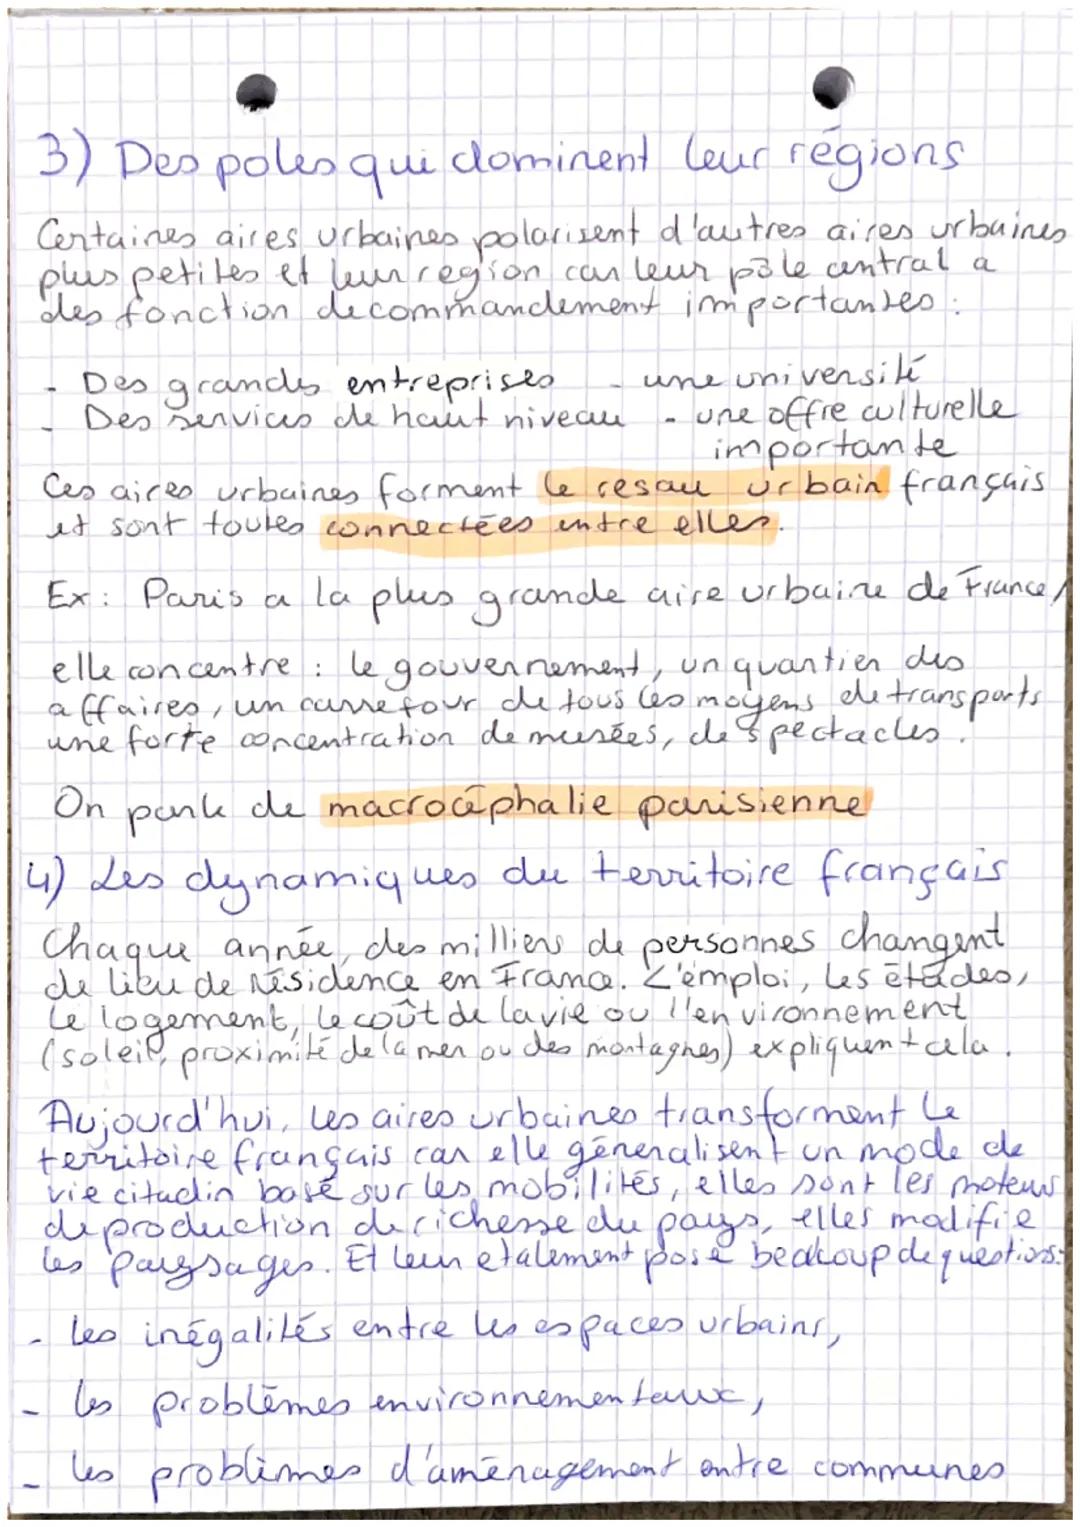 3) Des poles qui dominent leur régions
Certaines aires urbaines polarisent d'autres aires urbaines
plus petites et leur region car leur pôle central a
des fonction de commandement importantes :
- Des grands entreprises - une université
- Des services de haut niveau - une offre culturelle
importante
Ces aires urbaines forment le resau urbain français
et sont toutes connectées entre elles.
Ex : Paris a la plus grande aire urbaine de France,
elle concentre : le gouvernement, un quartier des
affaires, un carrefour de tous les moyens de transports
une forte concentration de musées, de spectacles.
On parle de macrocéphalie parisienne
4) Les dynamiques du territoire français
Chaque année, des milliers de personnes changent
de lieu de résidence en France. L'emploi, les études,
le logement, le coût de la vie ou l'environnement
(soleil, proximité de la mer ou des montagnes) expliquent cela.
Aujourd'hui, les aires urbaines transforment le
territoire français car elle géneralisent un mode de
vie citadin basé sur les mobilités, elles sont les moteurs
de production de richesse du pays, elles modifie
les paysages. Et leur etalement pose beacoup de questions :
- les inégalités entre les espaces urbains,
- les problèmes environnementaux,
- les problèmes d'aménagement entre communes